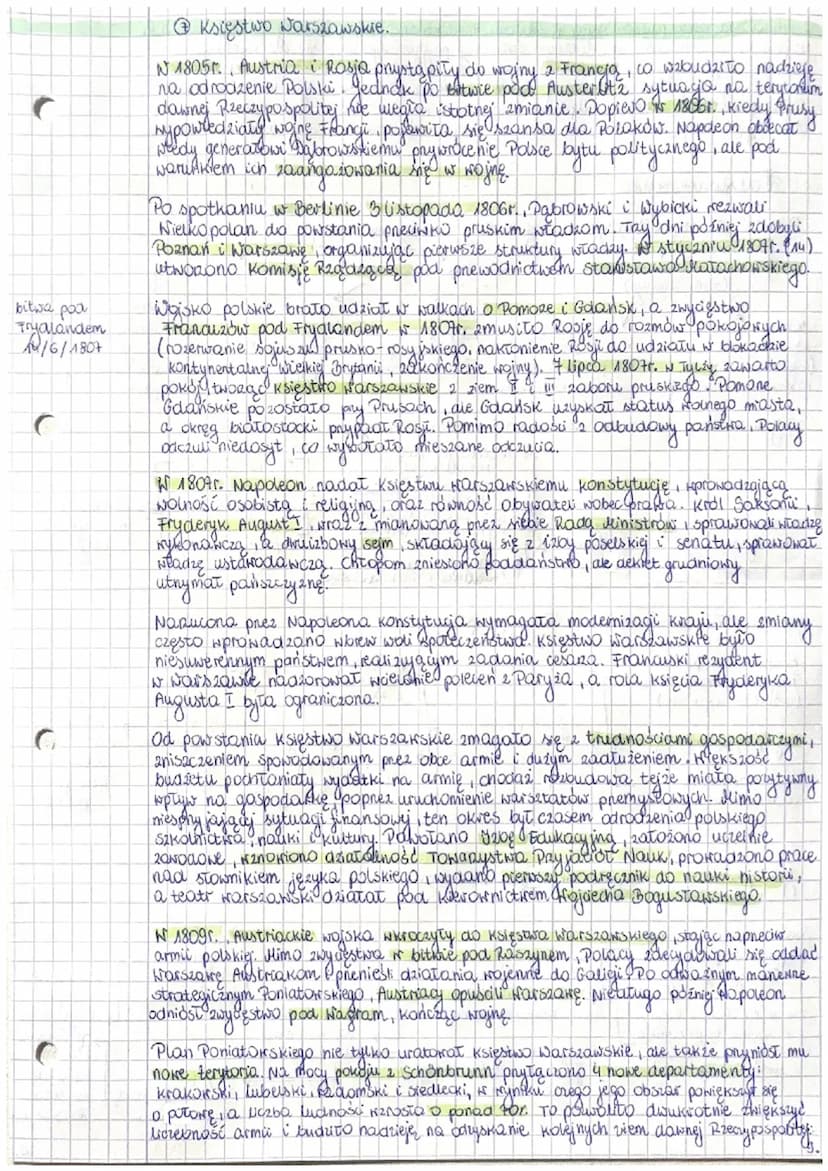 ⑦ Księstwo Warszawskie.
W 1805r., Austria i Rosja przystąpiły do wojny z Francją, co wzbudziło nadzieję
na odrodzenie Polski. Jednak po bitwie pod Austerlitz sytuacja na terytorium
dawnej Rzeczypospolitej nie uległa istotnej zmianie. Dopiero w 1806r., kiedy Prusy
wypowiedziały wojnę Francji, pojawiła się szansa dla Polaków. Napoleon obiecał
wtedy generałowi Dąbrowskiemu przywrócenie Polsce bytu politycznego, ale pod
warunkiem ich zaangażowania się w wojnę.
Po spotkaniu w Berlinie 3 listopada 1806r., Dąbrowski i Wybicki wezwali
Wielkopolan do powstania przeciwko pruskim władzom. Trzy dni później zdobyli
Poznań i Warszawę, organizując pierwsze struktury władzy. W styczniu 1807r. (14)
utworzono Komisję Rządzącą pod przewodnictwem Stanisława Małachowskiego.
bitwa pod
Frydlandem
14/6/1807
Wojsko polskie brało udział w walkach o Pomorze i Gdańsk, a zwycięstwo
Francuzów pod Frydlandem w 1807r. zmusiło Rosję do rozmów pokojowych
(rozerwanie sojuszu prusko-rosyjskiego, nakłonienie Rosji do udziału w blokadzie
kontynentalnej Wielkiej Brytanii, zakończenie wojny). 7 lipca 1807r. w Tylży zawarto
pokój tworząc Księstwo Warszawskie z ziem II i III zaboru pruskiego. Pomorze
Gdańskie pozostało przy Prusach, ale Gdańsk uzyskał status wolnego miasta,
a okręg białostocki przypadł Rosji. Pomimo radości z odbudowy państwa, Polacy
odczuli niedosyt, co wywołało mieszane odczucia.
W 1807r. Napoleon nadał Księstwu Warszawskiemu konstytucję, wprowadzającą
wolność osobistą i religijną, oraz równość obywateli wobec prawa. Król Saksonii,
Fryderyk August I, wraz z mianowaną przez siebie Radą Ministrów, sprawowali władzę
wykonawczą, a dwuizbowy sejm, składający się z izby poselskiej i senatu, sprawował
władzę ustawodawczą. Chłopom zniesiono poddaństwo, ale dekret grudniowy
utrzymał pańszczyznę.
Narzucona przez Napoleona konstytucja wymagała modernizacji kraju, ale zmiany
często wprowadzano wbrew woli społeczeństwa. Księstwo Warszawskie było
niesuwerennym państwem, realizującym zadania cesarza. Francuski rezydent
w Warszawie nadzorował wcielanie poleceń z Paryża, a rola księcia Fryderyka
Augusta I była ograniczona.
Od powstania Księstwo Warszawskie zmagało się z trudnościami gospodarczymi,
zniszczeniem spowodowanym przez obce armie i dużym zadłużeniem. Większość
budżetu pochłaniały wydatki na armię, chociaż rozbudowa tejże miała pozytywny
wpływ na gospodarkę poprzez uruchomienie warsztatów przemysłowych. Mimo
niesprzyjającej sytuacji finansowej, ten okres był czasem odrodzenia polskiego
szkolnictwa, nauki i kultury. Powołano Izbę Edukacyjną, założono uczelnie
zawodowe, wznowiono działalność Towarzystwa Przyjaciół Nauk, prowadzono prace
nad słownikiem języka polskiego, wydano pierwszy podręcznik do nauki historii,
a teatr warszawski działał pod kierownictwem Wojciecha Bogusławskiego.
W 1809r., Austriackie wojska wkroczyły do Księstwa Warszawskiego, stając naprzeciw
armii polskiej. Mimo zwycięstwa w bitwie pod Raszynem, Polacy zdecydowali się oddać
Warszawę Austriakom i przenieśli działania wojenne do Galicji. Po odważnym manewrze
strategicznym Poniatowskiego, Austriacy opuścili Warszawę. Niedługo później Napoleon
odniósł zwycięstwo pod Wagram, kończąc wojnę.
Plan Poniatowskiego nie tylko uratował Księstwo Warszawskie, ale także przyniósł mu
nowe terytoria. Na mocy pokoju z Schönbrunn przyłączono 4 nowe departamenty:
krakowski, lubelski, radomski i siedlecki, w wyniku czego jego obszar powiększył się
o połowę, a liczba ludności wzrosła o ponad
To pozwoliło dwukrotnie zwiększyć
liczebność armii i budziło nadzieję na odzyskanie kolejnych ziem dawnej Rzeczypospolitej.